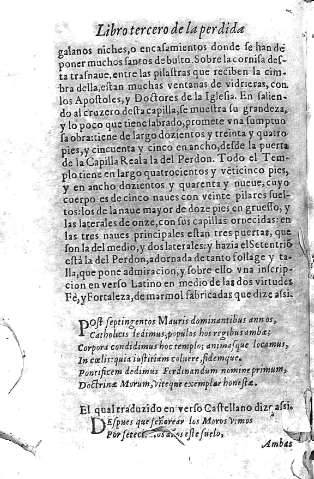 Libro tercero de la perdida
galanos niches, o encasamientos donde se han de
poner muchos santos de bulto. Sobre la cornisa des-
ta trasnaue, entre las pilastras que reciben la cim-
bra della, estan muchas ventanas de vidrieras, con
los Apostoles, y Doctores de la Iglesia. En salien-
do al cruzero desta capilla, se muestra su grandeza,
y lo poco que tiene labrado, promete vna sumptuo
sa obra: tiene de largo dozientos y treinta y quatro
pies, y cincuenta y cinco en ancho, desde la puerta
de la Capilla Real a la del Perdon. Todo el Tem-
plo tiene en largo quatrocientos y vëticinco pies,
y en ancho dozientos y quarenta y nueue, cuyo
cuerpo es de cinco naues con veinte pilares suel-
tos: los de la naue mayor de doze pies en gruesso, y
las laterales de onze, con sus capillas ornecidas: en
las tres naues principales estan tres puertas, que
son la del medio, y dos laterales: y hazia el Setentriõ
està la del Perdon, adornada de tanto follage y ta-
lla, que pone admiracion, y sobre ello vna inscrip-
cion en verso Latino en medio de las dos virtudes
Fè, y Fortaleza, de marmol fabricadas que dize assi.
Post septingentos Mauris dominantibus annos,
Catholicis dedimus, populos hos regibus ambæ;
Corpora condidimus hoc templo; animasque locamus,
In cœlis: quia iustitiam coluere, fidemque.
Pontificem dedimus Ferdinandum nomine primum,
Doctrinæ Morum, vitæque exemplar honestæ.
El qual traduzido en verso Castellano dize assi.
Despues que señorear los Moros vimos
Por setec os años este suelo,
Ambas